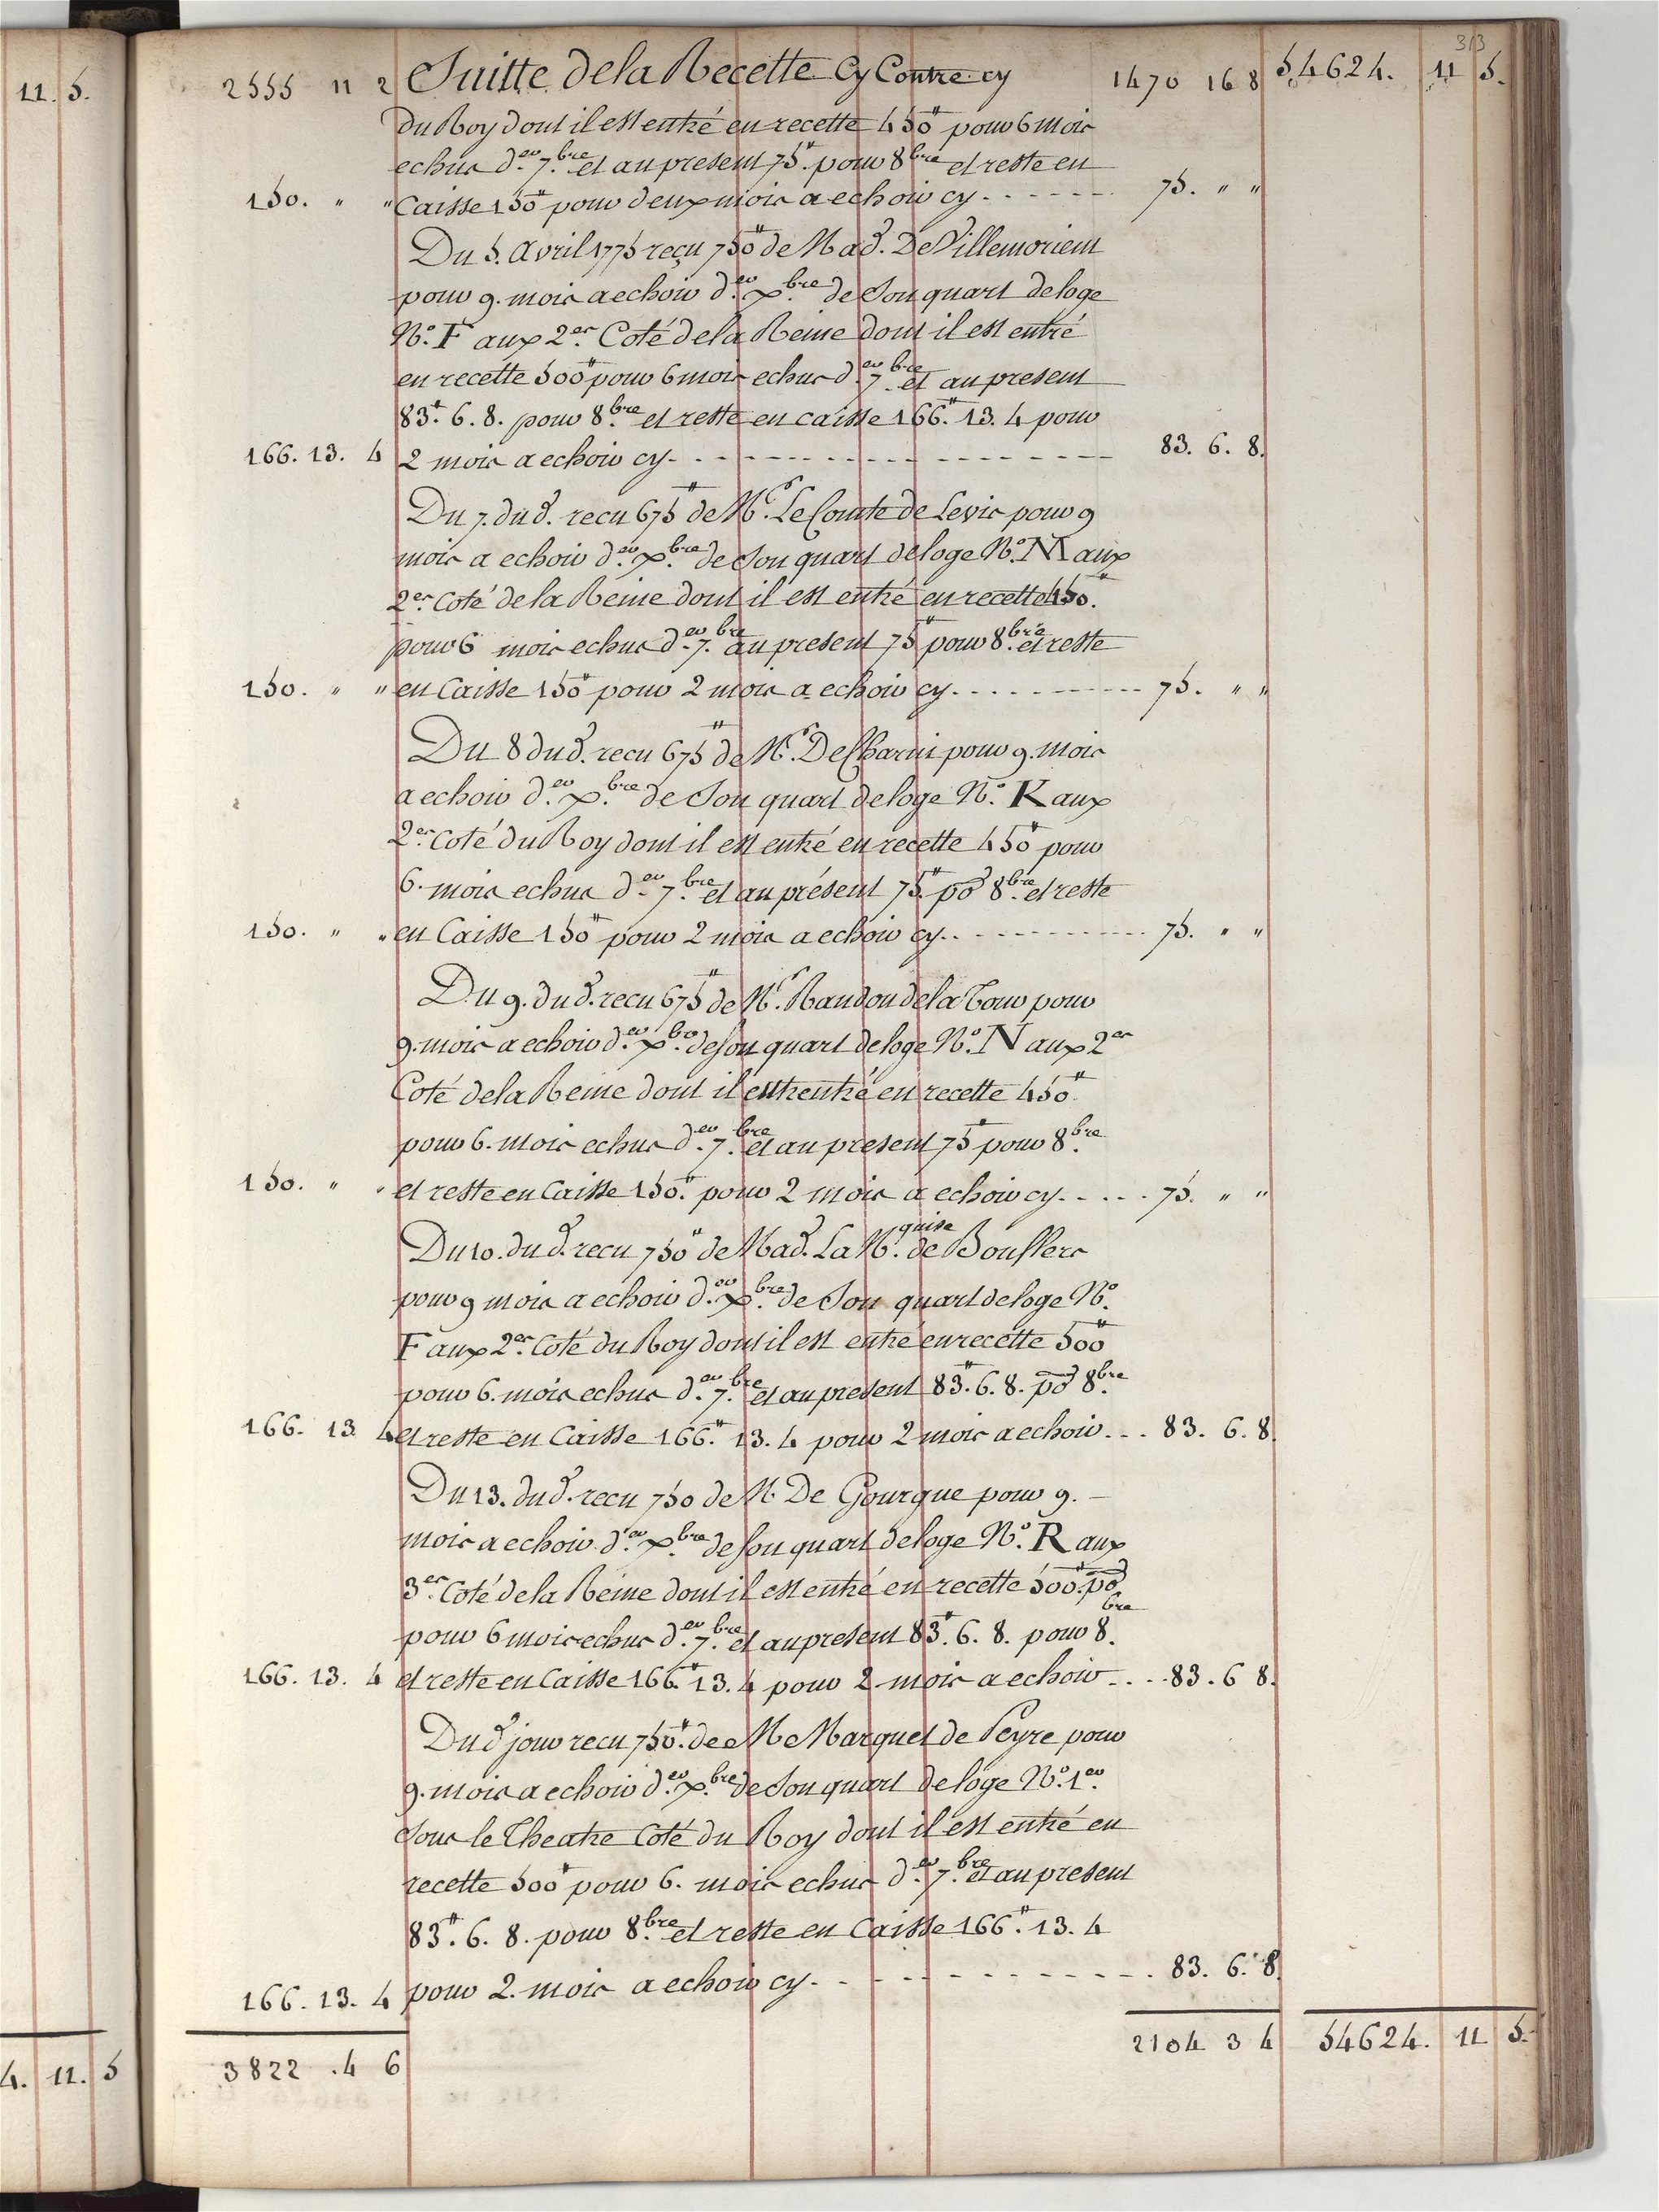 313
11. 5.
2555 11 2 Suitte de la Recette Cy Contre cy 1470 16 8 54624. 11 5.
du Roy dont il est entré en recette 450# pour 6 mois
echus d.er 7.bre et au present 75# pour 8bre et reste en
150. " " Caisse 150# pour deux mois a echoir cy 75. " "
Du 5. Avril 1775 reçu 750# de Mad. De Villemorient
pour 9. mois a echoir d.er x.bre de Son quart de loge
N.o F aux 2.es Coté de la Reine dont il est entré
en recette 500# pour 6 mois echus d.er 7.bre et au present
83# 6. 8. pour 8.bre et reste en caisse 166# 13. 4 pour
166. 13. 4 2 mois a echoir cy 83. 6. 8.
Du 7. dud. recu 675# de M.r Le Comte de Levis pour 9
mois a echoir d.er x.bre de Son quart de loge N.o M aux
2.es Coté de la Reine dont il est entré en recette 450#
pour 6 mois echus d.er 7.bre au present 75# pour 8.bre et reste
150. " " en Caisse 150# pour 2 mois a echoir cy 75. " "
Du 8 dud. recu 675# de M.r De Charni pour 9. mois
a echoir d.er x.bre de Son quart de loge N.o K aux
2.es Coté du Roy dont il est entré en recette 450# pour
6. mois echus d.er 7.bre et au présent 75# po.r 8.bre et reste
150. " " en Caisse 150# pour 2 mois a echoir cy 75. " "
Du 9. dud. recu 675# de M.r Randon de la Tour pour
9. mois a echoir d.er x.bre de Son quart de loge N.o N aux 2es
Coté de la Reine dont il est entré en recette 450#
pour 6. mois echus d.er 7.bre et au present 75# pour 8.bre
150. " " et reste en Caisse 150# pour 2 mois a echoir cy 75. " "
Du 10. dud. recu 750# de Mad. La M.quise de Bouflers
pour 9 mois a echoir d.er x.bre de Son quart de loge N.o
F aux 2.es Coté du Roy dont il est entré en recette 500#
pour 6. mois echus d.er 7.bre et au present 83# 6. 8. po.r 8.bre
166. 13 4 et reste en Caisse 166# 13. 4 pour 2 mois a echoir 83. 6. 8.
Du 13. dud. recu 750 de M De Gourgue pour 9.
mois a echoir d.er x.bre de Son quart de loge N.o R aux
3.es Coté de la Reine dont il est entré en recette 500# po.r
pour 6 mois echus d.er 7.bre et au present 83# 6. 8. pour 8.bre
166. 13. 4 et reste en Caisse 166# 13. 4 pour 2 mois a echoir 83. 6 8.
Dud jour recu 750# de M Marquet de Peyre pour
9. mois a echoir d.er x.bre de Son quart de loge N.o 1.er
Sous le Theatre Coté du Roy dont il est entré en
recette 500# pour 6. mois echus d.er 7.bre et au present
83# 6. 8. pour 8.bre et reste en Caisse 166# 13. 4
166. 13. 4 pour 2. mois a echoir cy 83. 6. 8.
4. 11. 5 3822 . 4 6 2104 3 4 54624. 11 5.